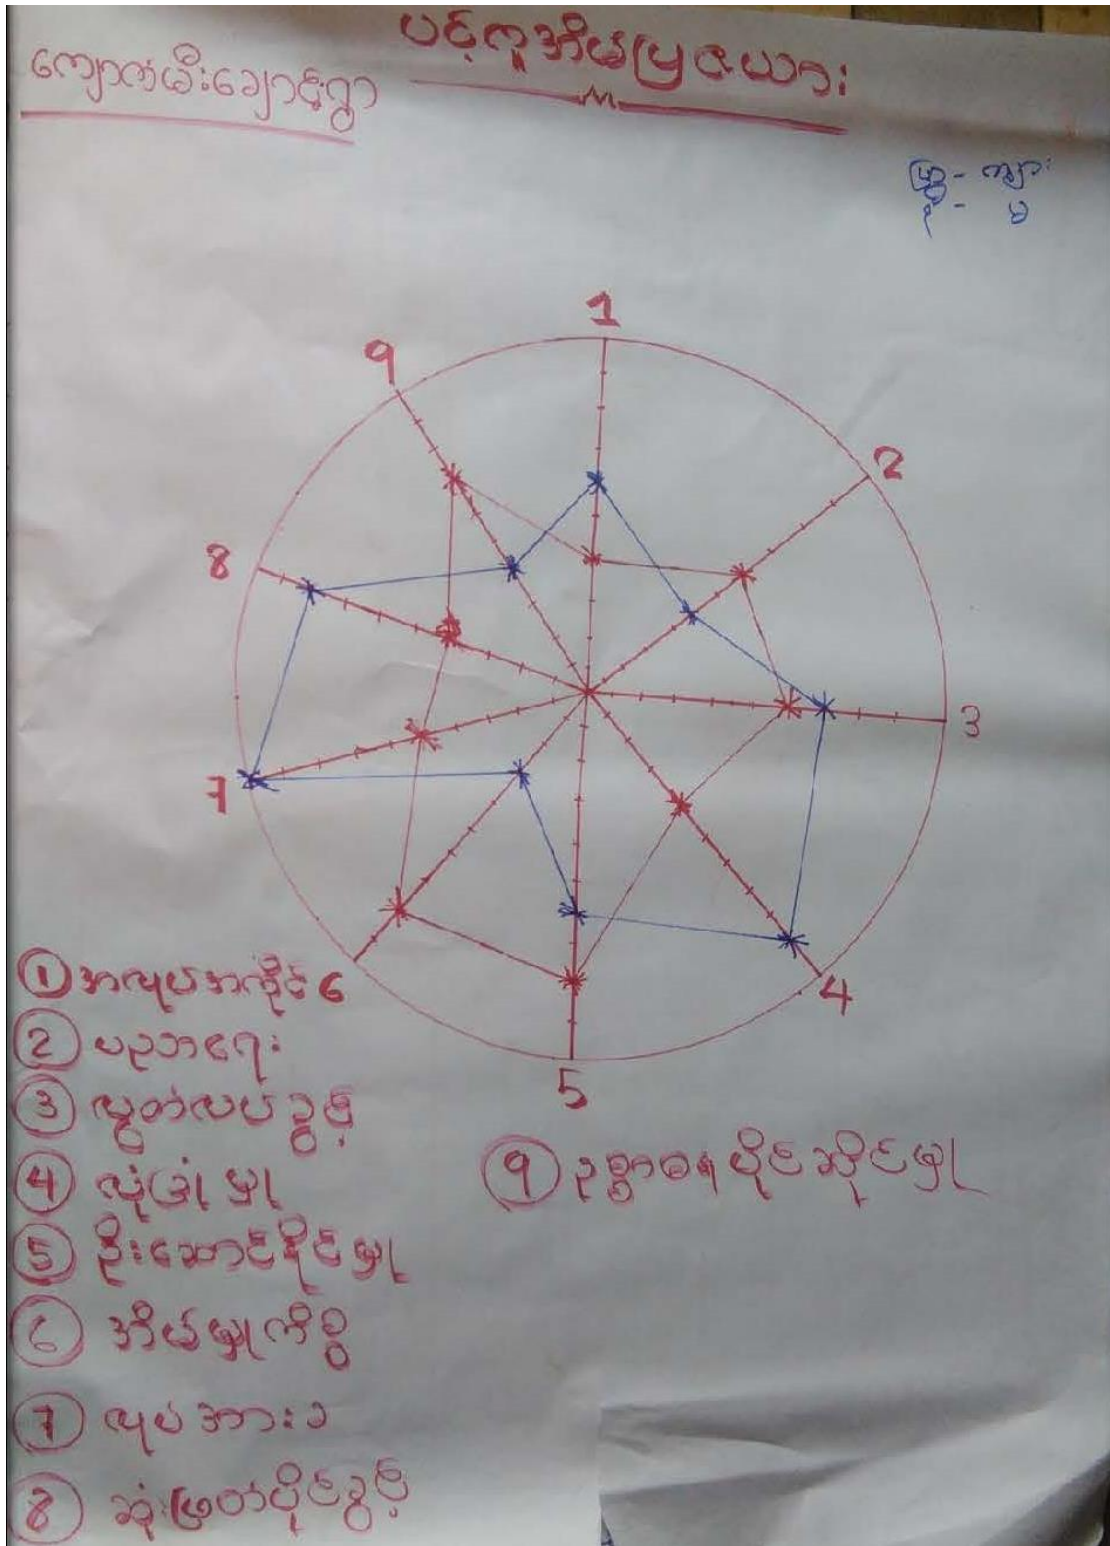 ပင့်ကူအိမ်ပြဇယား
ကျောက်မီးချောင်းရွာ
ပြာ - ကျား
နီ - မ
1
2
3
4
5
6
7
8
9
① အလုပ်အကိုင်
② ပညာရေး
③ လွတ်လပ်ခွင့်
④ လုံခြုံမှု
⑤ ဦးဆောင်နိုင်မှု
⑥ အိမ်မှုကိစ္စ
⑦ လုပ်အားခ
⑧ ဆုံးဖြတ်ပိုင်ခွင့်
⑨ ဥစ္စာဓနပိုင်ဆိုင်မှု